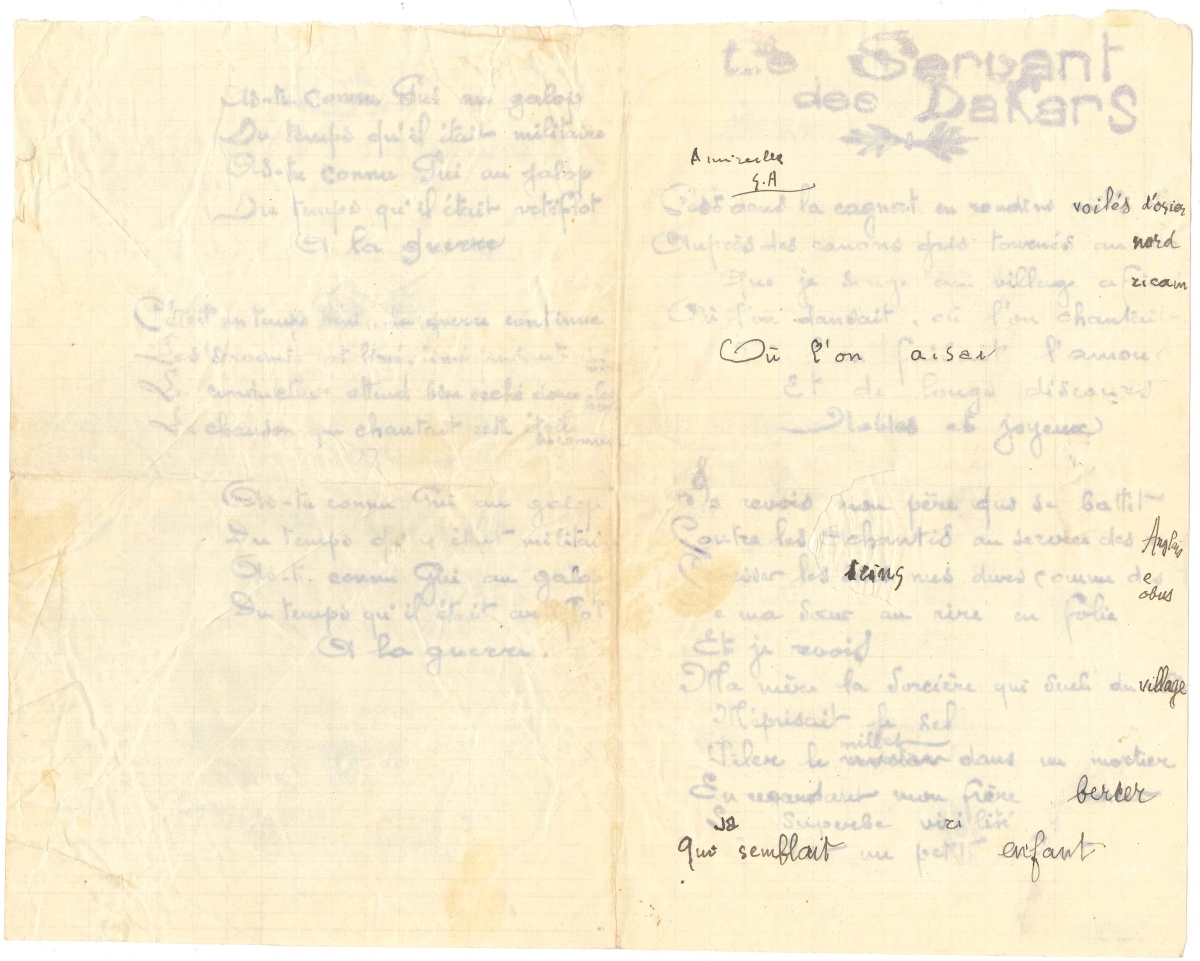 As-tu connu Gui au galop
Du temps qu'il était militaire
As-tu connu Gui au galop
Du temps qu'il était artiflot
A la guerre
C'était un temps béni, la guerre continue
Les Servants ont limé
Le conducteur attend bien caché sous les bois
La chanson que chantait cette étoile inconnue
As-tu connu Gui au galop
Du temps qu'il était militai
As-tu connu Gui au galop
Du temps qu'il était artiflot
A la guerre.
Le Servant
des Dakars
A mireille
G.A
C'est dans la cagnat en rondins voilés d'osier
Auprès des canons gris tournés au nord
Que je songe au village africain
Où l'on dansait, où l'on chantait
Où l'on faisait l'amour
Et de longs discours
Nobles et joyeux
Je revois mon père qui se battit
Contre les Achantis au service des Anglais
les seins nus durs comme des obus
e ma sœur au rire en folie
Et je revois
Ma mère la sorcière qui seule du village
Méprisait le sel
Piler le millet dans un mortier
En regardant mon frère bercer
Sa superbe virilité
Qui semblait un petit enfant